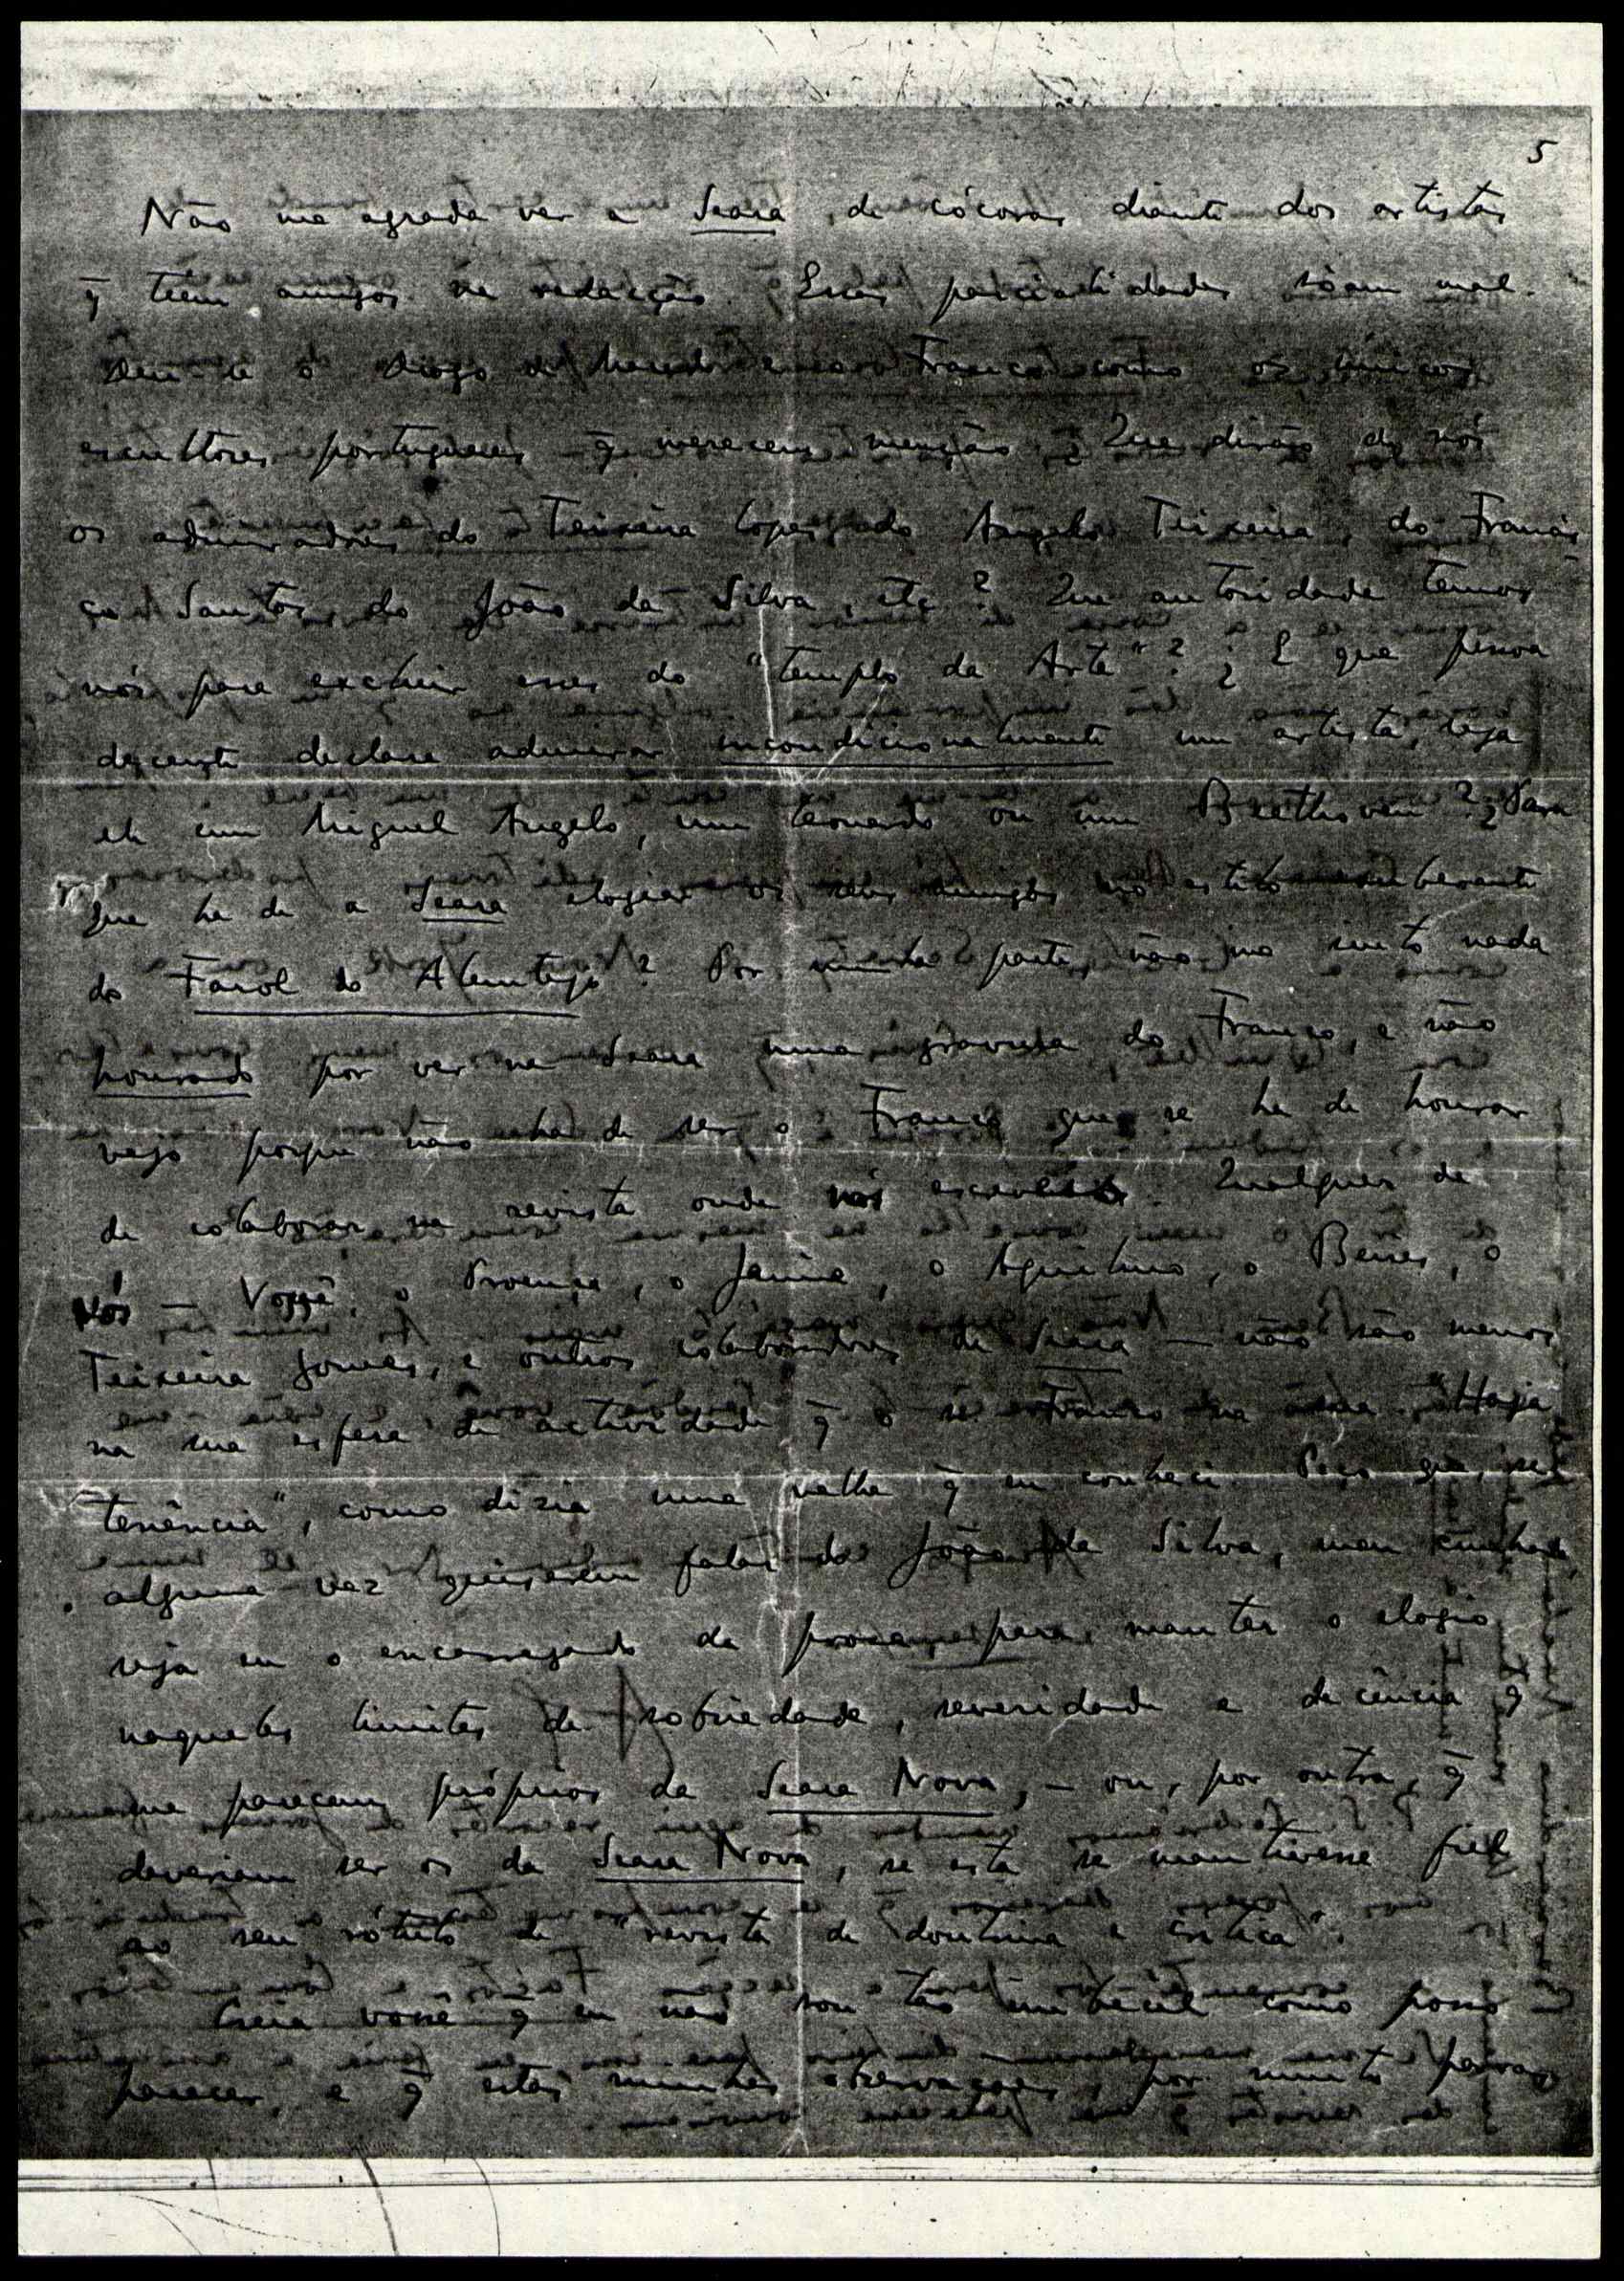 5
Não me agrada ver a Seara de cócoras diante dos artistas
q̄ teem amigos na redacção. Essas parcialidades sôam mal.
Dem-se o Diogo de Macedo e o Franco como os únicos
escultores portugueses q̄ merecem menção ¿ Que dirão de nós
os admiradores do Teixeira Lopes, do Angelo Teixeira, do Francis-
co Santos, do João da Silva, etc? Que autoridade temos
nós para excluir esses do "templo da Arte"? ¿ E que pessoa
decente declara admirar incondicionalmente um artista, seja
ele um Miguel Angelo, um Leonardo ou um Beethoven? ¿ Para
que ha de a Seara elogiar os seus amigos no estilo exuberante
do Farol do Alemtejo? Por minha parte, não me sinto nada
honrado por ver na Seara uma gravura do Franco, e não
vejo porque não ha de ser o Franco que se ha de honrar
de colaborar na revista onde nós escrevemos. Qualquer de
nós — Você, o Proença, o Jaime, o Aquilino, o Beires, o
Teixeira Gomes, e outros colaboradores da Seara — não são menos
na sua esfera de actividade q̄ o sr Franco na dele. "Haja
tenência", como dizia uma velha q̄ eu conheci. Peço que, se
alguma vez quiserem falar do João da Silva, meu cunhado,
seja eu o encarregado da prosa, para manter o elogio
naqueles limites de sobriedade, severidade e decência q̄
me parecem próprios da Seara Nova, — ou, por outra, q̄
deveriam ser os da Seara Nova, se esta se mantivesse fiel
ao seu rótulo de "revista de doutrina e crítica".
Creia você q̄ eu não sou tão imbecil como posso
parecer, e q̄ estas minhas observações, por muito